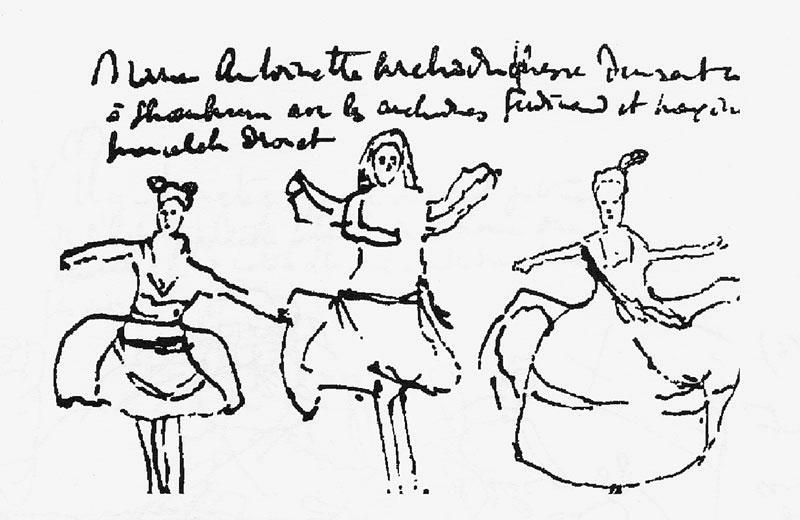 Marie Antoinette archiduchesse Dansant
à Shoenbrunn avec les archiducs ferdinand et
Drouet